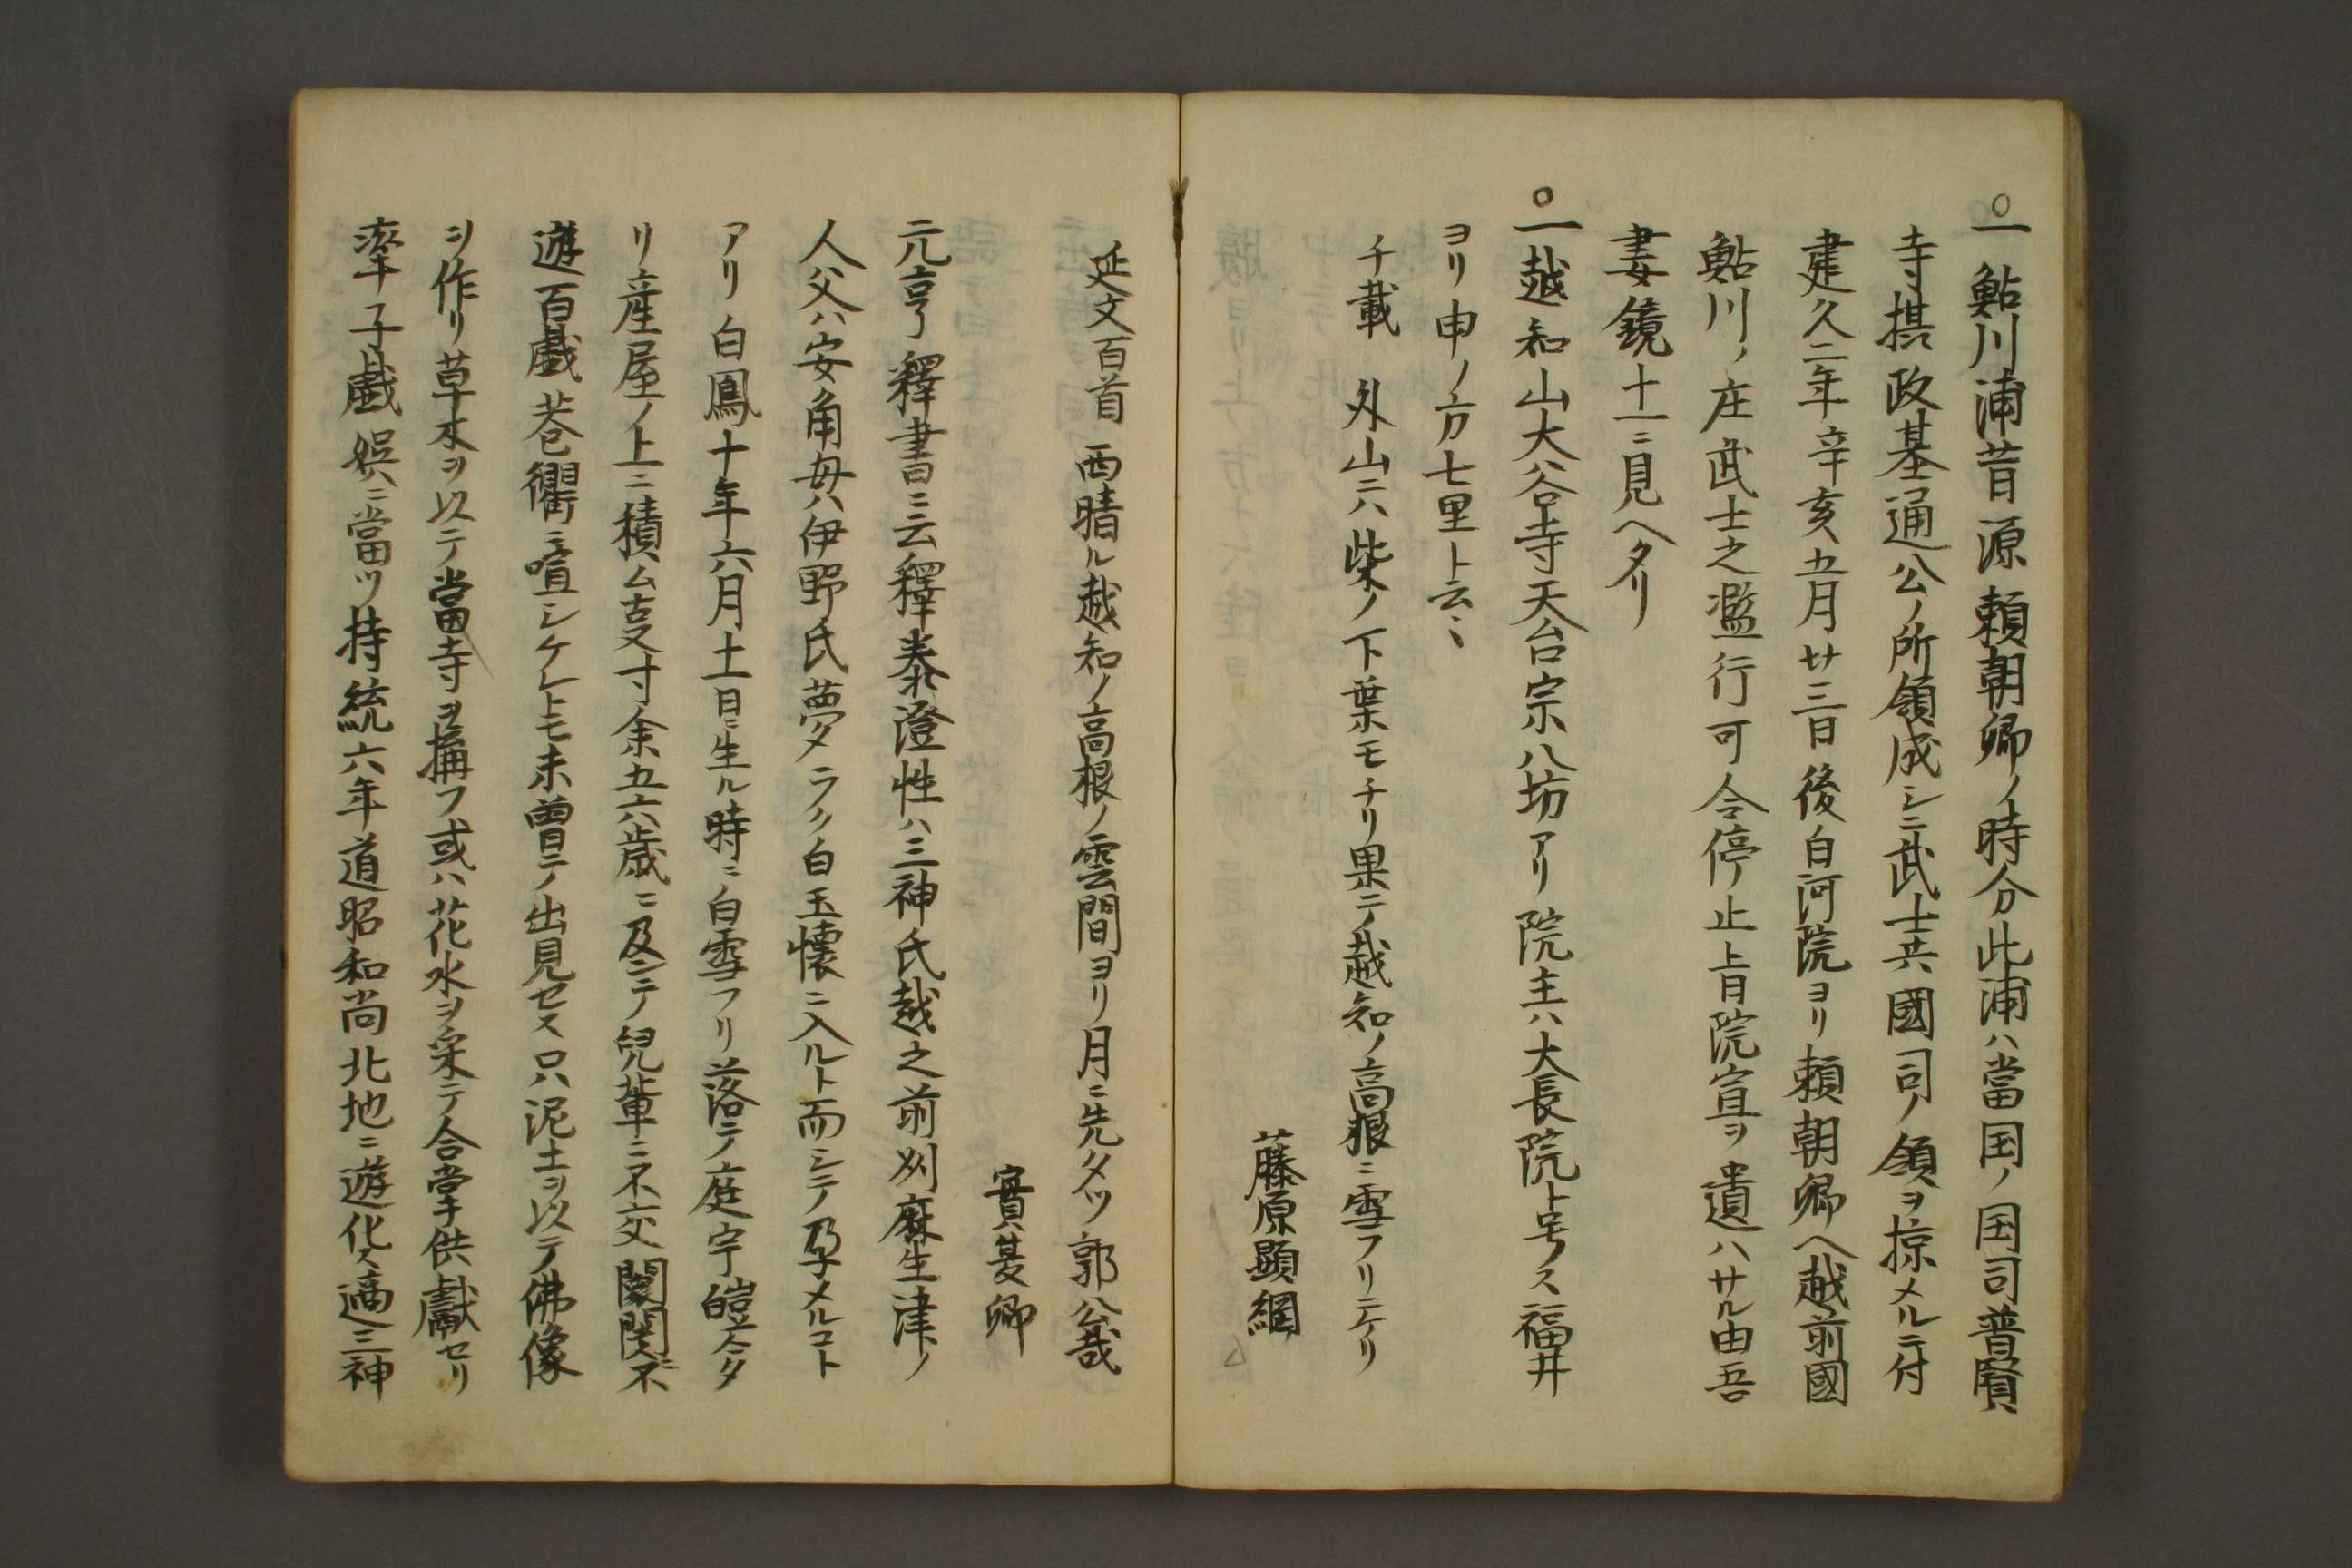 ○一鮎川浦昔源頼朝卿ノ時分此浦ハ當国ノ国司普賢
寺摂政基通公ノ所領成シニ武士共國司ノ領ヲ掠メルニ付
建久二年辛亥五月廿三日後白河院ヨリ頼朝卿ヘ越前國
鮎川ノ庄武士之濫行可令停止旨院宣ヲ遺ハサル由吾
妻鏡十一ニ見ヘタリ
○一越知山大谷寺天台宗八坊アリ院主ハ大長院ト号ス福井
ヨリ申ノ方七里ト云〻
千載　外山ニハ柴ノ下葉モチリ果テ越知ノ高根ニ雪フリニケリ
藤原顕綱
延文百首　西晴ル越知ノ高根ノ雲間ヨリ月ニ先タツ郭公哉
實夏卿
元亨釋書ニ云釋泰澄性ハ三神氏越之前刕麻生津ノ
人父ハ安角母ハ伊野氏夢タラク白玉懐ニ入ルト而シテ孕メルコト
アリ白鳳十年六月十一日ニ生ル時ニ白雪フリ落テ庭宇皚今タ
リ産屋ノ上ニ積ム支寸余五六歳ニ及ンテ兒輩ニ不交閭閻不
遊百戯巷衢ニ喧シケレトモ未曽テ出見セス只泥土ヲ以テ佛像
ヲ作リ草木ヲ以テ當寺ヲ搆フ或ハ花水ヲ采テ合掌供獻セリ
率子戯娯ニ當ツ持統六年道昭和尚北地ニ遊化ス適三神